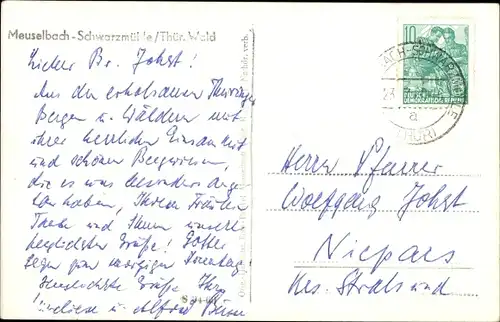 Meuselbach-Schwarzmühle/Thür. Wald
Lieber Br. Johst!
Aus den erholsamen Thüringer
Bergen u. Wäldern mit
ihrer herrlichen Einsamkeit
und schönen Bergwiesen,
die es uns besonders ange-
tan haben, Ihrem Fräulein
und Ihnen unsere
herzlichsten Grüße! Gottes
Segen zum morgigen Sonntag!
Herzlichste Grüße Ihre
u. Alfred
10
DEUTSCHE DEMOKRATISCHE REPUBLIK
BACH-SCHWARZMÜHLE
23
a
(THÜR)
Herrn Pfarrer
Wolfgang Johst
Niepars
Krs. Stralsund